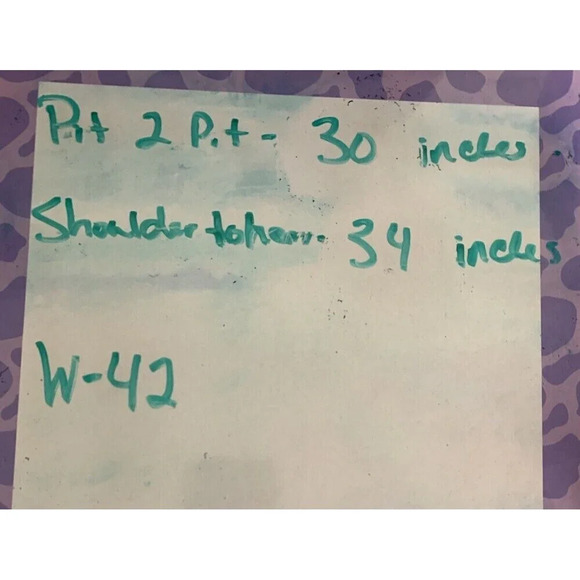 Pit 2 Pit - 30 inches
Shoulder to hem - 34 inches
W-42